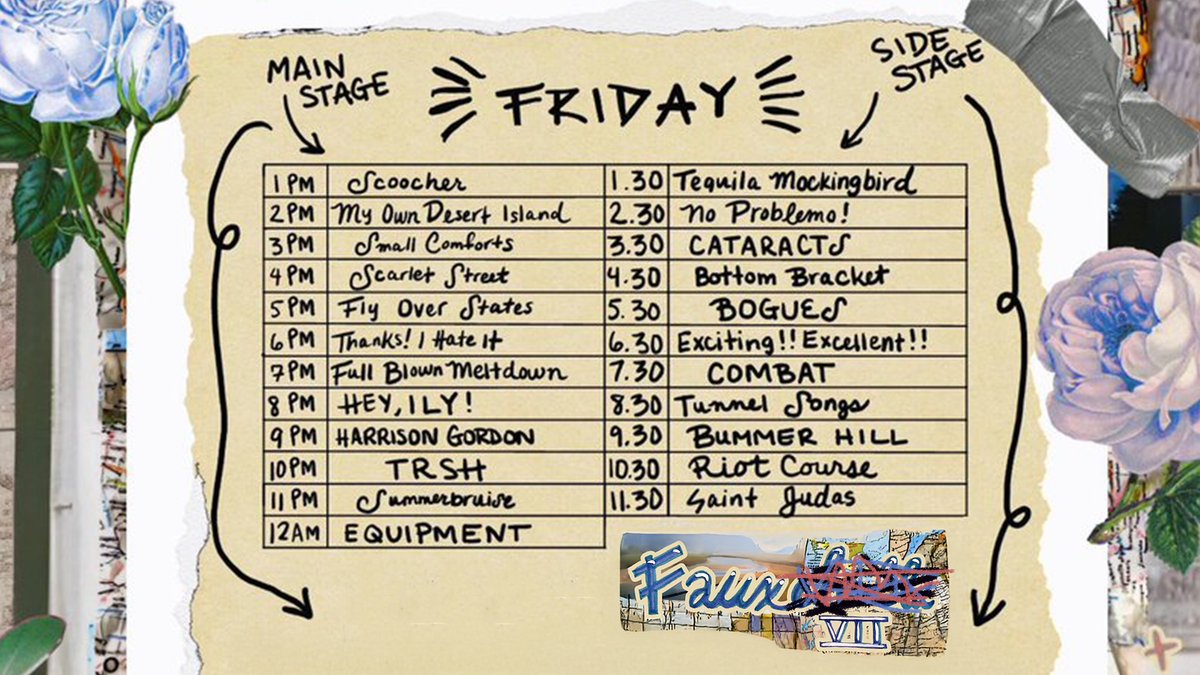 MAIN STAGE
FRIDAY
SIDE STAGE
1 PM Scoocher 1.30 Tequila Mockingbird
2PM My Own Desert Island 2.30 No Problemo!
3 PM Small Comforts 3.30 CATARACTS
4 PM Scarlet Street 4.30 Bottom Bracket
5PM Fly Over States 5.30 BOGUES
6 PM Thanks! I Hate It 6.30 Exciting!! Excellent!!
7PM Full Blown Meltdown 7.30 COMBAT
8 PM HEY, ILY! 8.30 Tunnel Songs
9 PM HARRISON GORDON 9.30 BUMMER HILL
10PM TRSH 10.30 Riot Course
11 PM Summerbruise 11.30 Saint Judas
12AM EQUIPMENT
Faux
VII